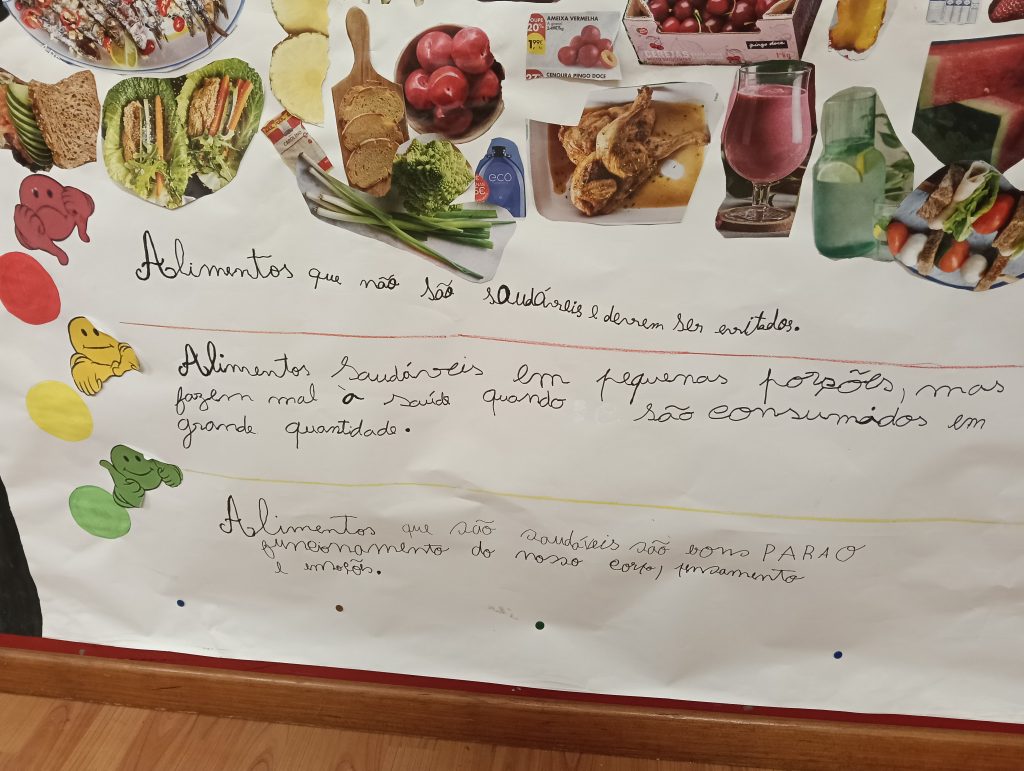 AMEIXA VERMELHA
20%
1,99€
CENOURA PINGO DOCE
27%
pingo doce
eco
Alimentos que não são saudáveis e devem ser evitados.
Alimentos saudáveis em pequenas porções, mas
fazem mal à saúde quando são consumidos em
grande quantidade.
Alimentos que são saudáveis são bons PARA O
funcionamento do nosso corpo, pensamento
e emoções.